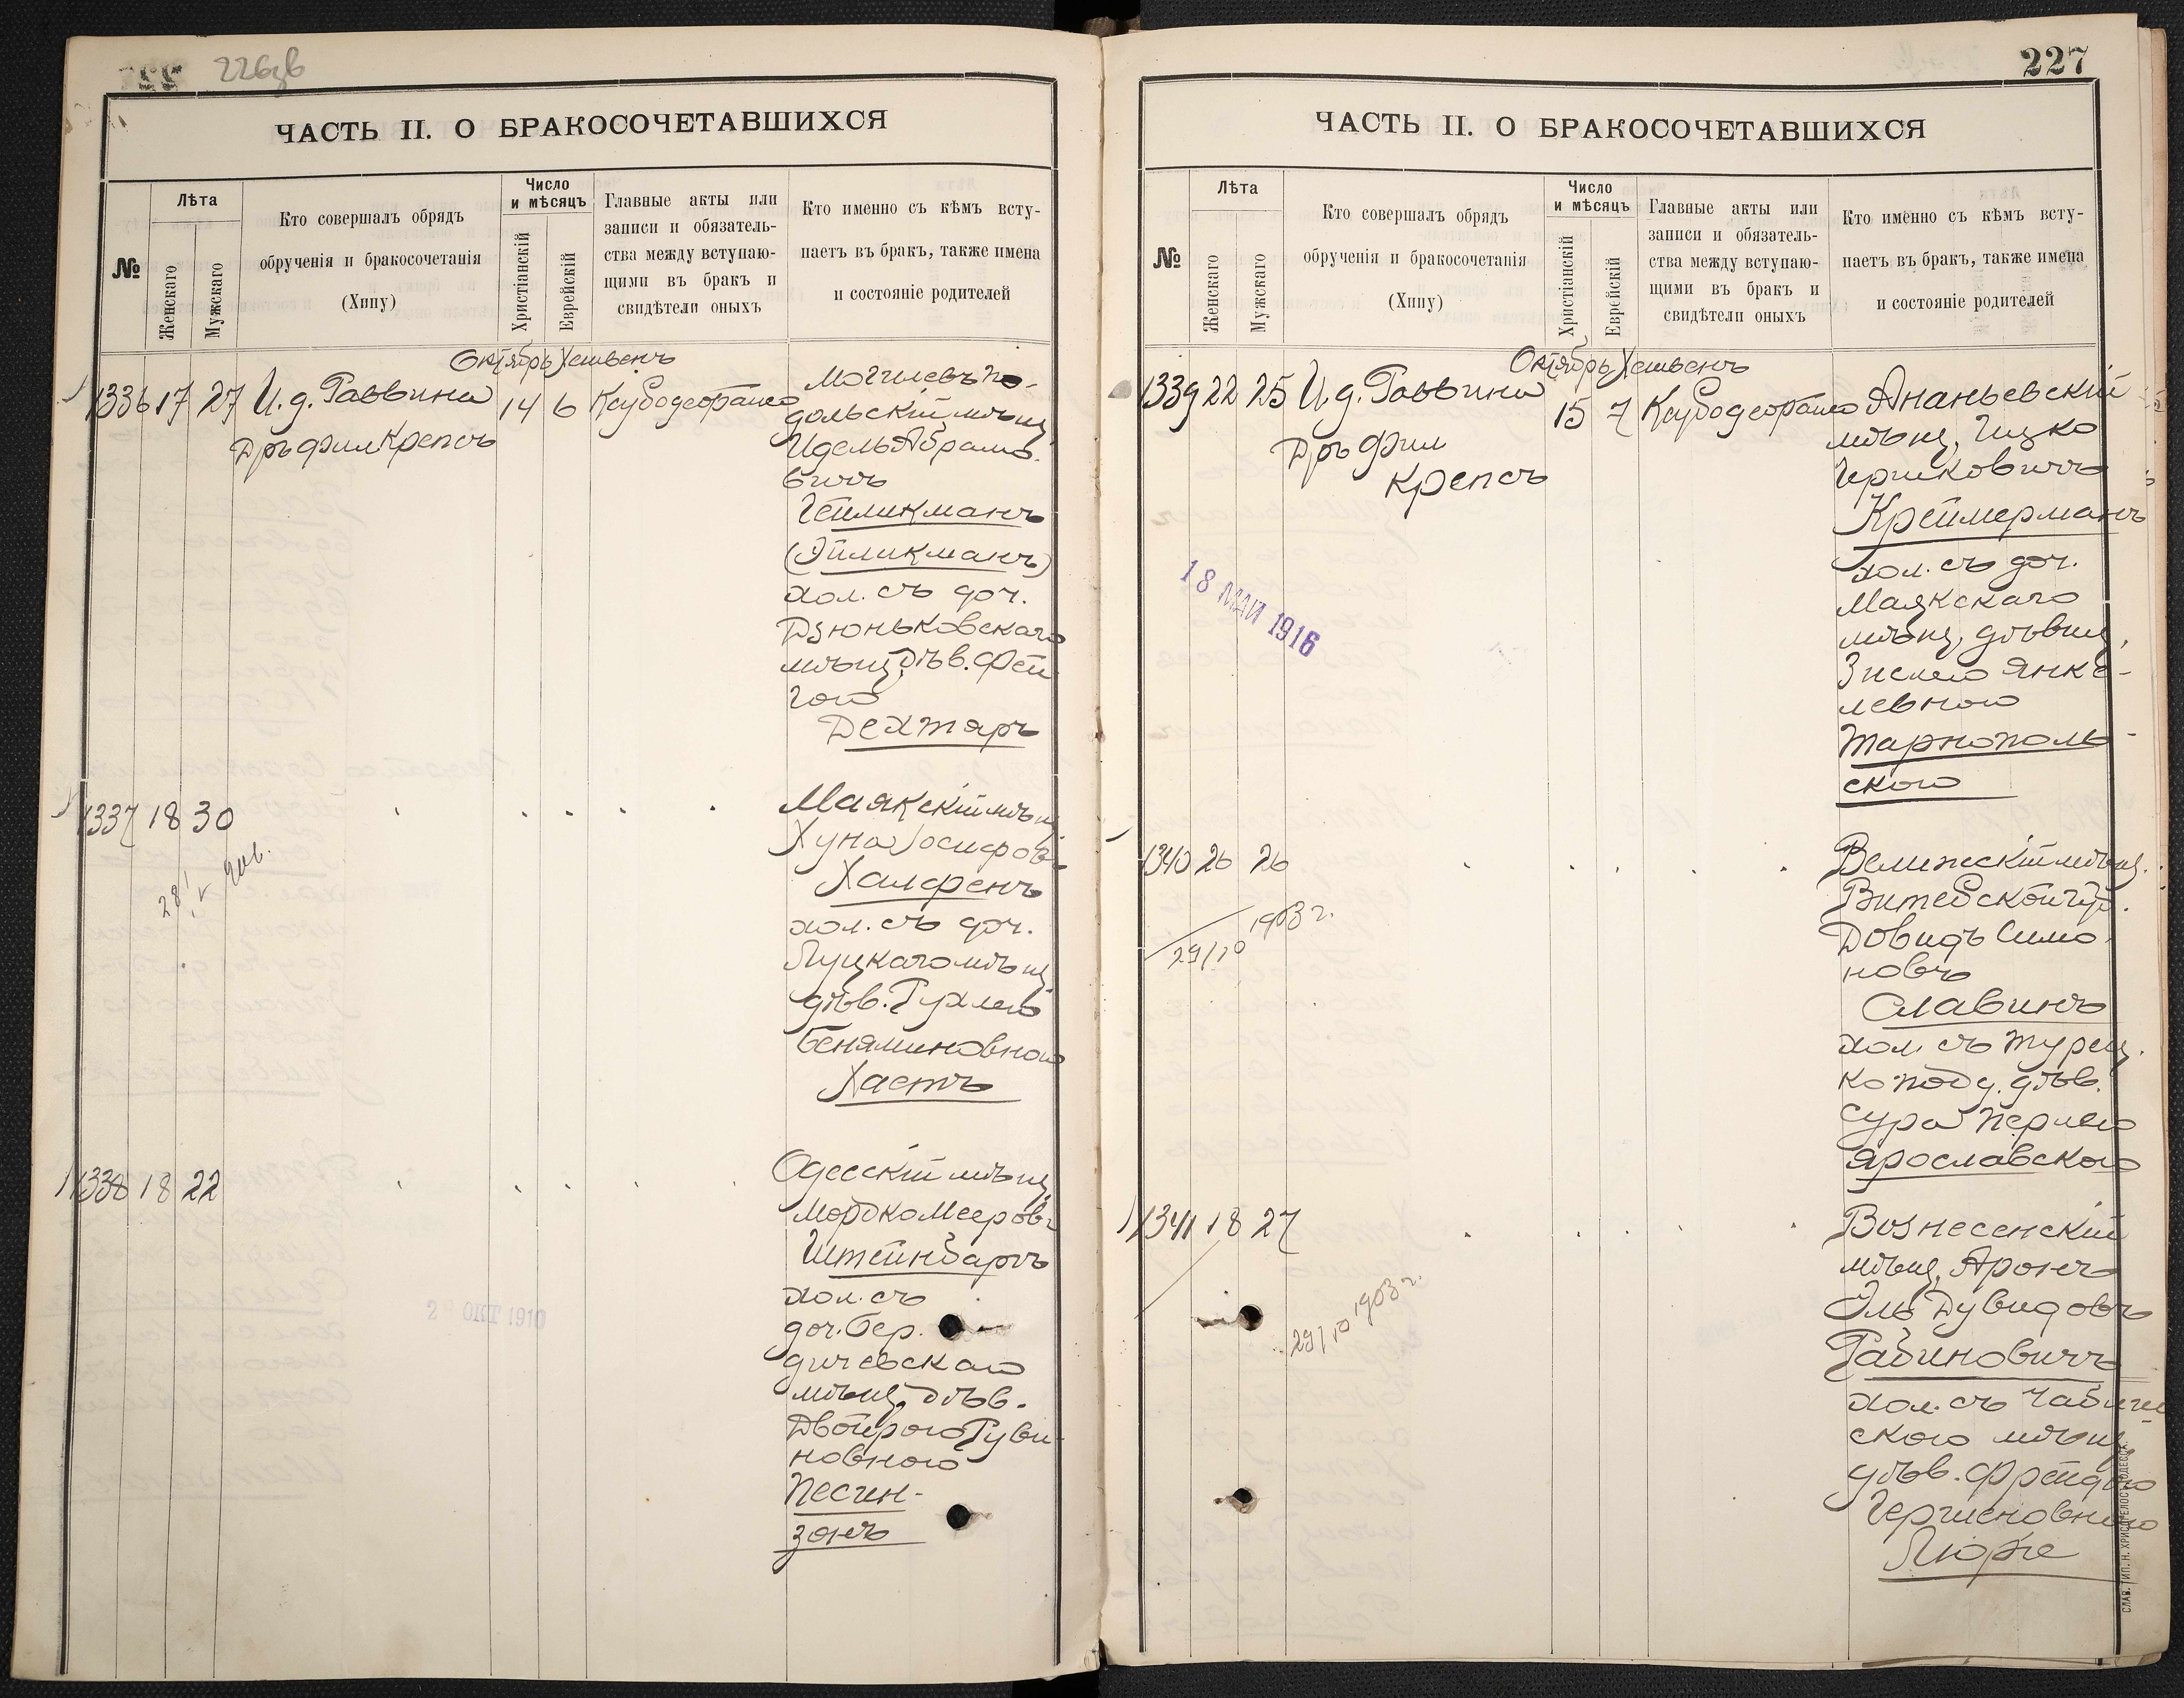 226об
ЧАСТЬ II. О БРАКОСОЧЕТАВШИХСЯ
№
Лѣта
Женскаго
Мужскаго
Кто совершалъ обрядъ
обрученія и бракосочетанія
(Хипу)
Число
и мѣсяцъ
Христіанскій
Еврейскій
Главные акты или
записи и обязатель-
ства между вступаю-
щими въ бракъ и
свидѣтели оныхъ
Кто именно съ кѣмъ всту-
паетъ въ бракъ, также имена
и состояніе родителей
Октябрь Хешвенъ
1336 17 27 И. д. Раввина 14 6
Дръ Фил Крепсъ
Могилевъ По-
дольскій мѣщ.
Идель Абрамо-
вичъ
Гейликманъ
(Эйликманъ)
хол. съ доч.
Дзюньковскаго
мѣщ. дѣв. Фей
гою
Дехтяръ
1337 18 30
Маякскій мѣщ.
Хуна Іосифов.
Халфенъ
хол. съ доч.
Луцкаго мѣщ.
дѣв. Рухлею
Беняминовною
Хастъ
1338 18 22
Одесскій мѣщ.
Мордко Мееров.
Штейнбаргъ
хол. съ
доч. Бер.
дичевскаго
мѣщ. дѣв.
Двойрою Руви-
новною
Песин-
зонъ
2 ОКТ 1910
227
ЧАСТЬ II. О БРАКОСОЧЕТАВШИХСЯ
№
Лѣта
Женскаго
Мужскаго
Кто совершалъ обрядъ
обрученія и бракосочетанія
(Хипу)
Число
и мѣсяцъ
Христіанскій
Еврейскій
Главные акты или
записи и обязатель-
ства между вступаю-
щими въ бракъ и
свидѣтели оныхъ
Кто именно съ кѣмъ всту-
паетъ въ бракъ, также имена
и состояніе родителей
Октябрь Хешвенъ
1339 22 25 И. д. Раввина 15 7
Дръ Фил
Крепсъ
18 МАЙ 1916
Ананьевскій
мѣщ. Ицко
Гершковичъ
Креймерманъ
хол. съ доч.
Маякскаго
мѣщ. дѣвиц.
Зислею Янке-
левною
Тарнополь-
скою
1340 26 26
29/10 1903 г.
Велижскій мѣщ.
Витебской губ.
Довидъ Симо-
новъ
Славинъ
хол. съ турец.
ко подд. дѣв.
Сура Перлею
Ярославскою
1341 18 27
29/10 1903 г.
Вознесенскій
мѣщ. Аронъ
Эль Дувидовъ
Рабиновичъ
хол. съ
скою мѣщ.
дѣв. Фрейдою
Гершоновною
Люрье
СЛАВ. ТИП. Н. ХРИСОГЕЛОСЪ, ОДЕССА.